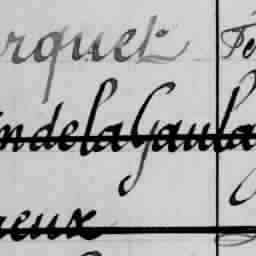 rquet Fe
ndelaGaula
reux